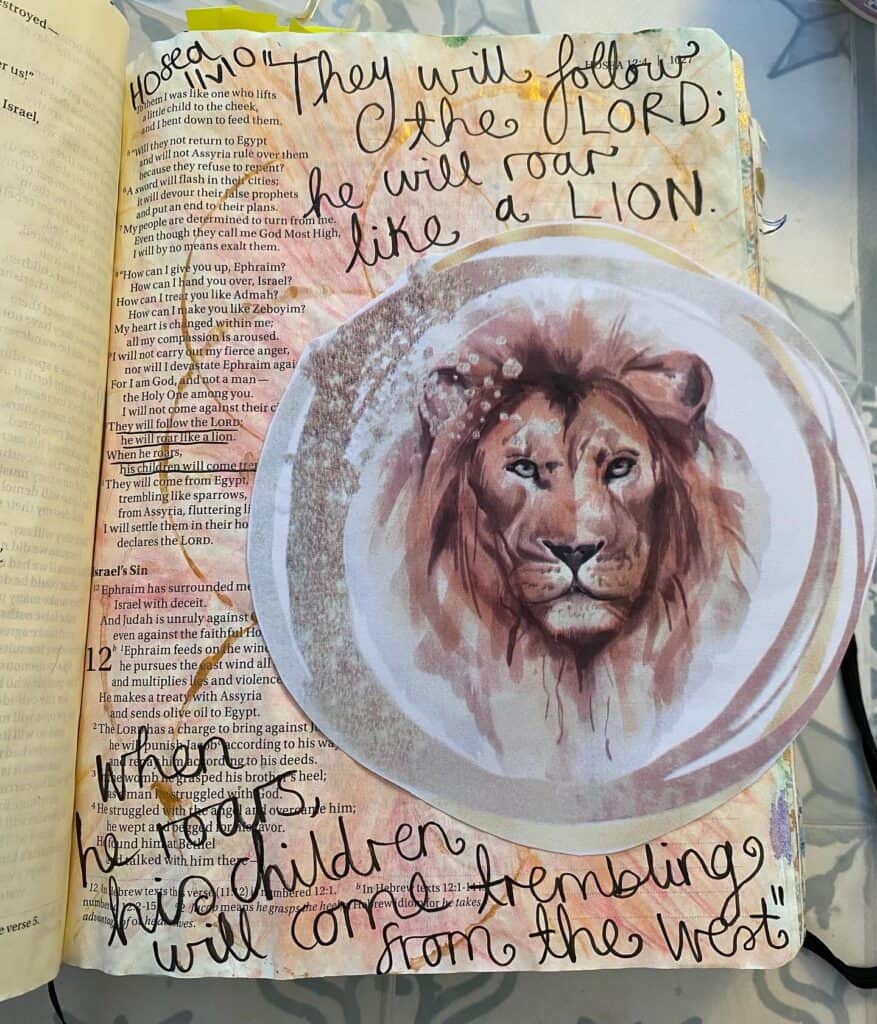 stroyed—
r us!”
Israel,
e verse 5.
Hosea
11v10
HOSEA 12:4 | 1027
They will follow
the LORD;
he will roar
like a LION.
them I was like one who lifts
a little child to the cheek,
and I bent down to feed them.
5 “Will they not return to Egypt
and will not Assyria rule over them
because they refuse to repent?
6 A sword will flash in their cities;
it will devour their false prophets
and put an end to their plans.
7 My people are determined to turn from me.
Even though they call me God Most High,
I will by no means exalt them.
8 “How can I give you up, Ephraim?
How can I hand you over, Israel?
How can I treat you like Admah?
How can I make you like Zeboyim?
My heart is changed within me;
all my compassion is aroused.
9 I will not carry out my fierce anger,
nor will I devastate Ephraim agai
For I am God, and not a man—
the Holy One among you.
I will not come against their c
They will follow the LORD;
he will roar like a lion.
When he roars,
his children will come tre
They will come from Egypt,
trembling like sparrows,
from Assyria, fluttering li
I will settle them in their ho
declares the LORD.
Israel’s Sin
12 Ephraim has surrounded me
Israel with deceit.
And Judah is unruly against
even against the faithful Ho
12 b 1 Ephraim feeds on the wind
he pursues the east wind all
and multiplies lies and violence
He makes a treaty with Assyria
and sends olive oil to Egypt.
2 The LORD has a charge to bring against J
he will punish Jacob according to his wa
and repay him according to his deeds.
3 In the womb he grasped his brother’s heel;
as a man he struggled with God.
4 He struggled with the angel and overcame him;
he wept and begged for his favor.
He found him at Bethel
and talked with him there—
when
he roars,
his children
will come trembling
from the west"